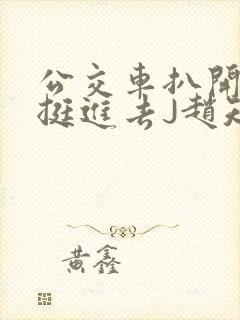 公交車扒開
挺進去J趙
黃鑫